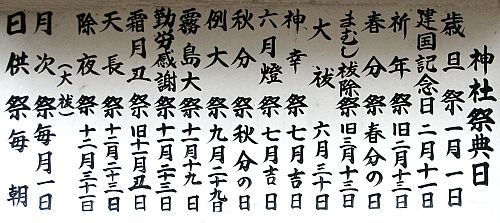 神社祭典日
歳旦祭 一月一日
建国記念日 二月十一日
祈年祭 旧二月十三日
春分祭 春分の日
まむし祓除祭 旧三月十三日
大祓 六月三十日
神幸祭 七月吉日
六月燈祭 七月吉日
秋分祭 秋分の日
例大祭 九月二十九日
霧島大祭 十月十九日
勤労感謝祭 十一月二十三日
霜月丑祭 旧十一月丑日
天長祭 十二月二十三日
除夜祭 十二月三十一日
(大祓)
月次祭 毎月一日
日供祭 毎朝